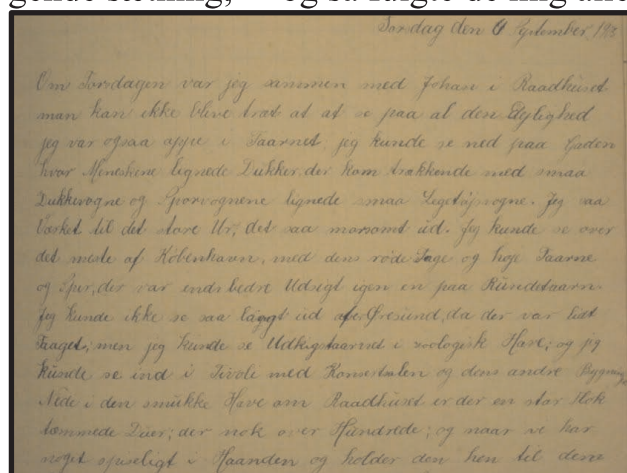 gende sætning, — og så fulgte de mig alle
Torsdag den 6 September, 1918
Om Torsdagen var jeg sammen med Johan i Raadhuset
man kan ikke blive træt at at se paa al den Dejlighed
jeg var ogsaa oppe i Taarnet, jeg kunde se ned paa Gaden
hvor Mineskene lignede Dukker, der kom trækkende med smaa
Dukkevogne og Sporvognene lignede smaa Legetøjsvogne. Jeg saa
Værket til det store Ur, det saa morsomt ud. Jeg kunde se over
det meste af København, med dens røde Tage og høje Taarne
og Spir, der var endnu bedre Udsigt igen en paa Rundetaarn
Jeg kunde ikke se saa langt ud over Øresund, da der var lidt
Taaget, men jeg kunde se Udkigstaarnet i zoologisk Have; og jeg
kunde se ind i Tivoli med Konsertsalen og dens andre Bygning
Nede i den smukke Have om Raadhuset er der en stor Flok
tæmmede Duer; der nok over Hundrede; og naar vi har
noget spiseligt i Haanden og holder den hen til dem